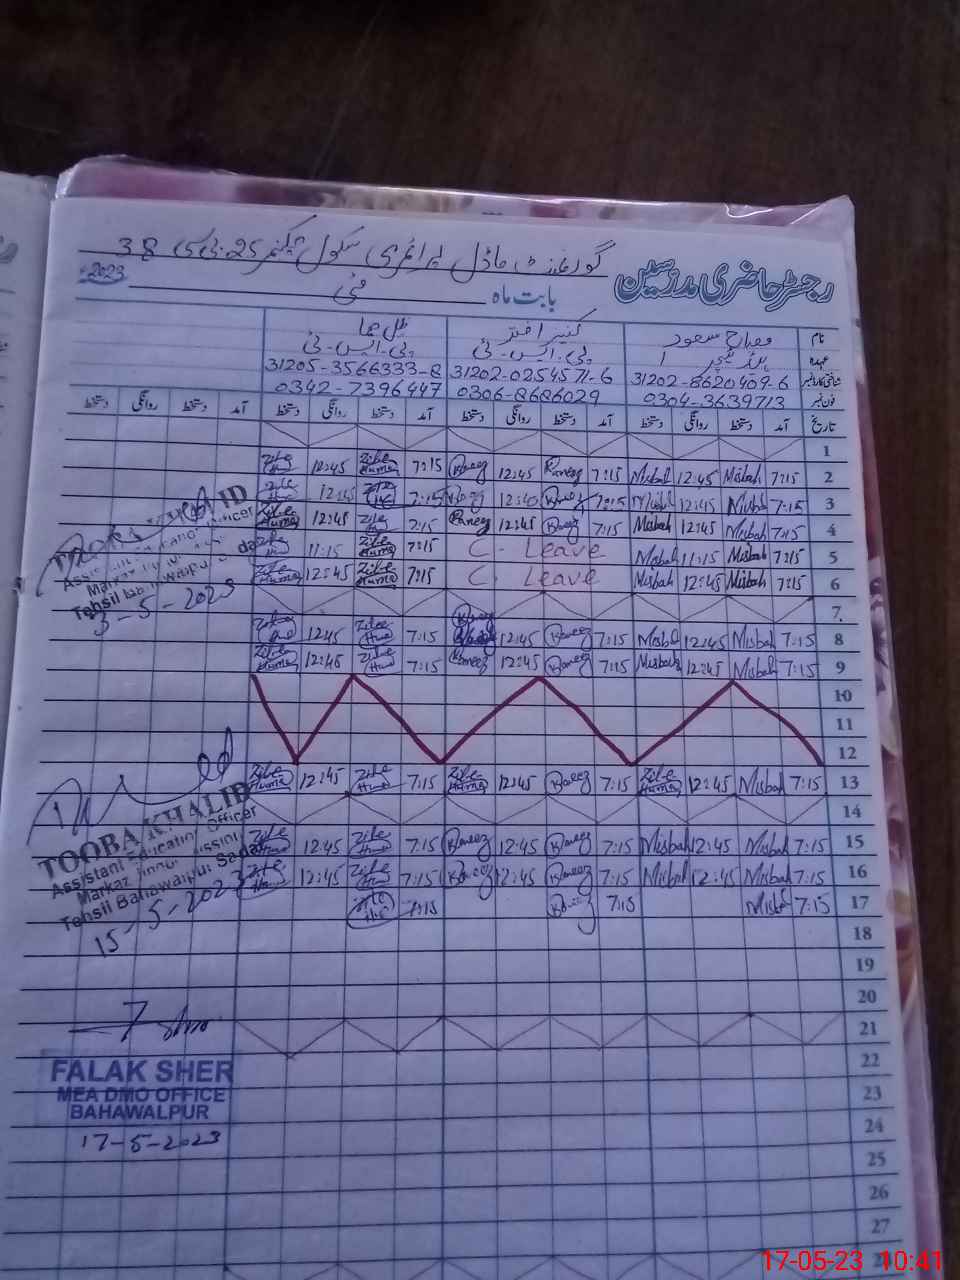 گورنمنٹ ماڈل پرائمری سکول چکنمبر 25 بی سی 38
رجسٹر حاضری مدرسین
بابت ماہ مئی 2023ء
نام مصباح سعود کنیز اختر ظل ھما
عہدہ ہیڈ ٹیچر پی.ایس.ٹی پی.ایس.ٹی
شناختی کارڈ نمبر 31202-8620409-6 31202-0254571-6 31205-3566333-8
فون نمبر 0304-3639713 0306-8686029 0342-7396447
تاریخ آمد دستخط روانگی دستخط آمد دستخط روانگی دستخط آمد دستخط روانگی دستخط آمد دستخط روانگی دستخط
1
Zille Huma 12:45 Zille Huma 7:15 Kaneez 12:45 Kaneez 7:15 Misbah 12:45 Misbah 7:15 2
12:45 7:15 Kaneez 12:40 Kaneez 7:15 Misbah 12:45 Misbah 7:15 3
Zille Huma 12:45 Zille 7:15 Kaneez 12:45 Kaneez 7:15 Misbah 12:45 Misbah 7:15 4
11:15 Zille Huma 7:15 C. Leave Misbah 11:15 Misbah 7:15 5
Zille Huma 12:45 Zille Huma 7:15 C. Leave Misbah 12:45 Misbah 7:15 6
7
12:45 Zille Huma 7:15 Kaneez 12:45 Kaneez 7:15 Misbah 12:45 Misbah 7:15 8
Zille Huma 12:45 Zille Huma 7:15 Kaneez 12:45 Kaneez 7:15 Misbah 12:45 Misbah 7:15 9
10
11
12
Zille Huma 12:45 Zille Huma 7:15 Zille Huma 12:45 Kaneez 7:15 Zille Huma 12:45 Misbah 7:15 13
14
Zille Huma 12:45 Zille Huma 7:15 Kaneez 12:45 Kaneez 7:15 Misbah 12:45 Misbah 7:15 15
Zille Huma 12:45 Zille Huma 7:15 Kaneez 12:45 Kaneez 7:15 Misbah 12:45 Misbah 7:15 16
Zille Huma 7:15 Kaneez 7:15 Misbah 7:15 17
18
19
20
21
22
23
24
25
26
27
28
TOOBA KHALID
Assistant Education Officer
Tehsil Bahawalpur Sadar
3-5-2023
TOOBA KHALID
Assistant Education Officer
Markaz
Tehsil Bahawalpur Sadar
15-5-2023
FALAK SHER
MEA DMO OFFICE
BAHAWALPUR
17-5-2023
17-05-23 10:41